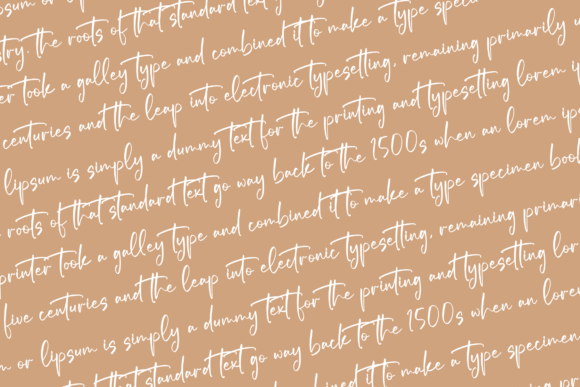 psum or
stry. the roots of that standard text
er took a galley type and combined it to make a type speci
centuries and the leap into electronic typesetting, remaining primarily u
lipsum is simply a dummy text for the printing and typesetting lorem ip
roots of that standard text go way back to the 1500s when an lorem ips
printer took a galley type and combined it to make a type specimen book
five centuries and the leap into electronic typesetting, remaining primari
m or lipsum is simply a dummy text for the printing and typesetting lor
that standard text go way back to the 1500s when an lorem
it to make a type specimen